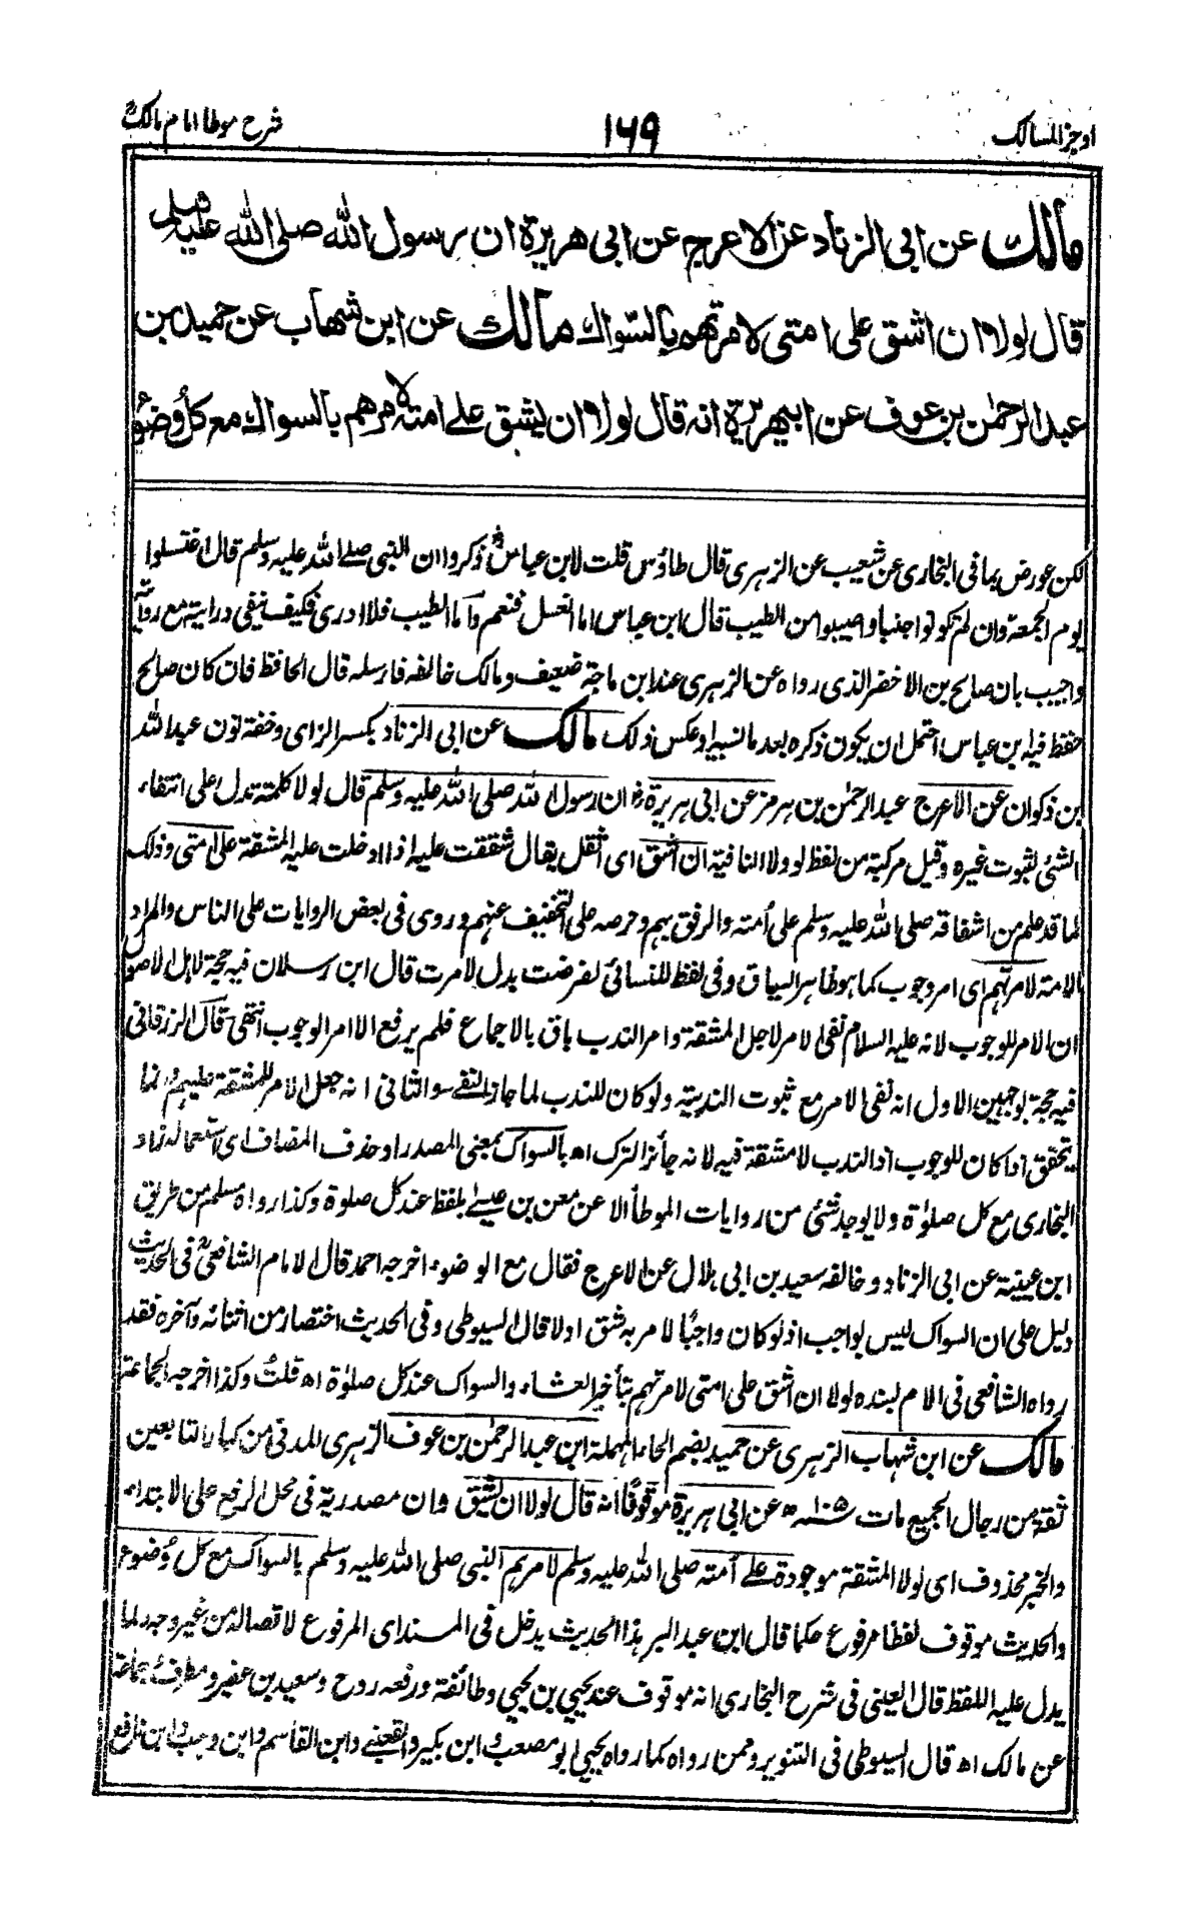 اوجز المسالك ١٦٩ شرح موطا امام مالكؒ
مالك عن ابى الزناد عن الاعرج عن ابى هريرة ان رسول الله صلى الله عليه وسلم
قال لولا ان اشق على امتى لامرتهم بالسواك مالك عن ابن شهاب عن حميد بن
عبد الرحمٰن بن عوف عن ابى هريرة انه قال لولا ان يشق على امته لامرهم بالسواك مع كل وضوء
لكن عورض بما فى البخارى عن شعيب عن الزهرى قال طاؤس قلت لابن عباسؓ ذكروا ان النبى صلے الله عليه وسلم قال اغتسلوا
يوم الجمعة وان لم تكونوا جنبا واصيبوا من الطيب قال ابن عباس اما الغسل فنعم وأما الطيب فلا ادرى فكيف ينفى درايته مع روايته
واجيب بان صالح بن الاخضر الذى رواه عن الزهرى عند ابن ماجة ضعيف ومالك خالفه فارسله قال الحافظ فان كان صالح
حفظ فيه ابن عباس احتمل ان يكون ذكره بعد ما نسيه او عكس ذلك مالك عن ابى الزناد بكسر الزاى وخفة نون عبد الله
ابن ذكوان عن الأعرج عبد الرحمٰن بن هرمز عن ابى هريرةؓ ان رسول الله صلى الله عليه وسلم قال لولا كلمة تدل على انتفاء
الشئ لثبوت غيره وقيل مركبة من لفظ لو ولا النافية ان اشق اى اثقل يقال شققت عليه اذا ادخلت عليه المشقة على امتى وذلك
لما قد علم من اشفاقه صلى الله عليه وسلم على أمته والرفق بهم وحرصه على التخفيف عنهم وروى فى بعض الروايات على الناس والمراد
الامة لامرتهم اى امر وجوب كما هو ظاهر السياق وفى لفظ للنسائى لفرضت بدل لامرت قال ابن رسلان فيه حجة لاهل الاصول
ان الامر للوجوب لانه عليه السلام نفى الامر لاجل المشقة وامر الندب باق بالاجماع فلم يرفع الا امر الوجوب انتهى قال الزرقانى
فيه حجة بوجهين الاول انه نفى الامر مع ثبوت الندبية ولو كان للندب لما جاز النفے والثانى انه جعل الامر للمشقة عليهم وانما
يتحقق اذا كان للوجوب اذ الندب لا مشقة فيه لانه جائز الترك اه بالسواك بمعنى المصدر او حذف المضاف اى استعماله زاد
البخارى مع كل صلوٰة ولا يوجد شئى من روايات الموطأ الا عن معن بن عيسے بلفظ عند كل صلوة وكذا رواه مسلم من طريق
ابن عيينة عن ابى الزناد وخالفه سعيد بن ابى هلال عن الاعرج فقال مع الوضوء اخرجه احمد قال الامام الشافعىؒ فى الحديث
دليل على ان السواك ليس بواجب اذ لو كان واجبًا لامر به شق اولا قال السيوطى وفى الحديث اختصار من اثنائه وآخره فقد
رواه الشافعى فى الام بسنده لولا ان اشق على امتى لامرتهم بتأخير العشاء والسواك عند كل صلوٰة اه قلتُ وكذا اخرجه الجماعة
مالك عن ابن شهاب الزهرى عن حميد بضم الحاء المهملة ابن عبد الرحمٰن بن عوف الزهرى المدنى من كبار التابعين
ثقة من رجال الجميع مات ١٠٥ه عن ابى هريرة موقوفًا انه قال لولا ان يشق وان مصدرية فى محل الرفع على الابتداء
والخبر محذوف اى لولا المشقة موجودة علے أمته صلى الله عليه وسلم لامرهم النبى صلى الله عليه وسلم بالسواك مع كل وُضوء
والحديث موقوف لفظا مرفوع حكما قال ابن عبد البر هذا الحديث يدخل فى المسند اى المرفوع لاتصاله من غير وجه ولما
يدل عليه اللفظ قال العينى فى شرح البخارى انه موقوف عند يحيى بن يحيى وطائفة ورفعه روح وسعيد بن عفير ومطرف وجماعة
عن مالك اه قال السيوطى فى التنوير وممن رواه كما رواه يحيى ابو مصعب وابن بكير والقعنبے وابن القاسم وابن وهب وابن نافع